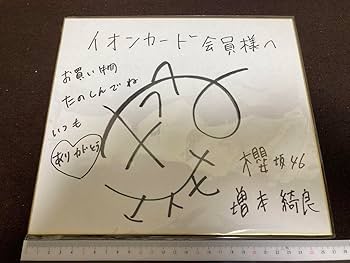 イオンカード会員様へ
お買い物
たのしんでね
いつも
ありがとう
櫻坂46
増本綺良